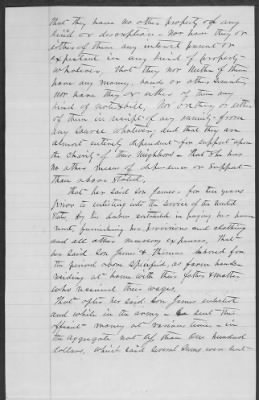 that they have no other property of any
kind or description - nor have they or
either of them any interest present or
expectant in any kind of property -
whatever, that they nor neither of them
have any money, bonds or other security
nor have they or either of them any
kind of note & bill, nor are they or either
of them in receipt of any annuity from
any source whatever, and that they are
almost entirely dependent for support upon
the charity of their neighbors - that she has
no other means of dependence or support
than above stated,
that her said son James - for ten years
prior to enlisting into the service of the United
States by his labor assisted in paying her house
rent, furnishing her provisions and clothing
and all other necessary expenses, That
her said son James & Thomas labored for
the period above specified, as farm hands
residing at home with their father & mother
who received their wages,
That after her said Son James enlisted
and while in the army - he sent this
affiant - money at various times - in
the aggregate not less than One hundred
dollars, which said several sums were sent